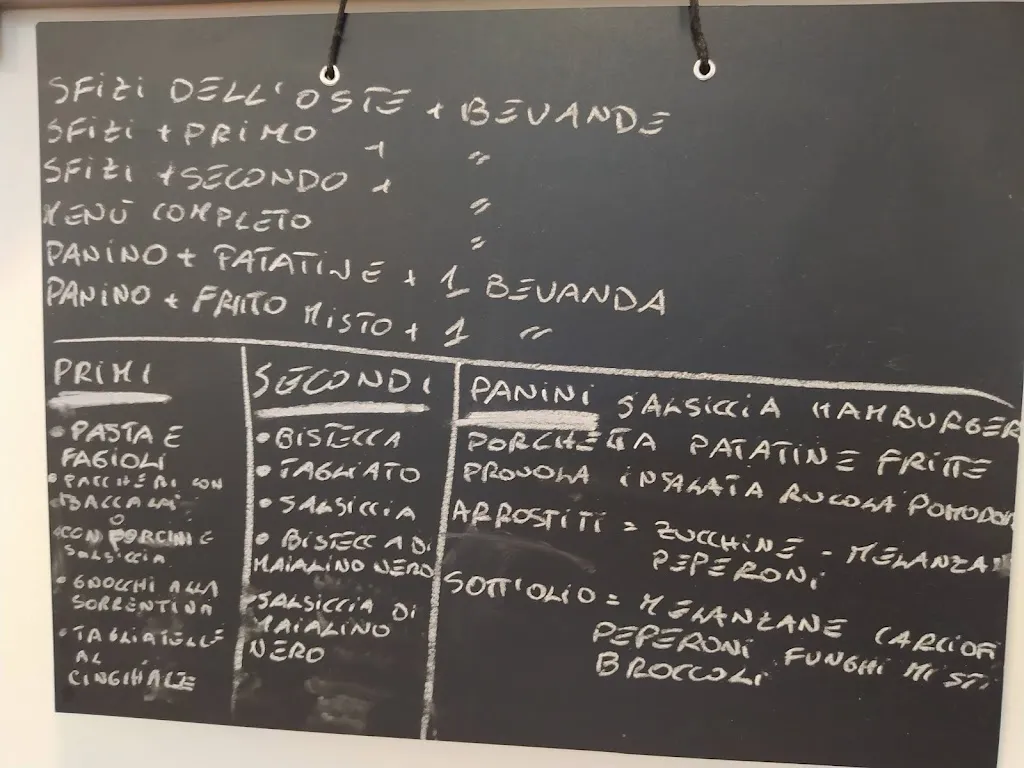 SFIZI DELL'OSTE + BEVANDE
SFIZI + PRIMO + "
SFIZI + SECONDO + "
MENÙ COMPLETO "
PANINO + PATATINE + 1 BEVANDA
PANINO + FRITTO MISTO + 1 "
PRIMI
• PASTA E
FAGIOLI
• PACCHERI CON
BACCALÀ
O
CON PORCINI E
SALSICCIA
• GNOCCHI ALLA
SORRENTINA
• TAGLIATELLE
AL
CINGHIALE
SECONDI
• BISTECCA
• TAGLIATO
• SALSICCIA
• BISTECCA DI
MAIALINO NERO
• SALSICCIA DI
MAIALINO
NERO
PANINI SALSICCIA HAMBURGER
PORCHETTA PATATINE FRITTE
PROVOLA INSALATA RUCOLA POMODORI
ARROSTITI = ZUCCHINE - MELANZAN
PEPERONI
SOTT'OLIO = MELANZANE CARCIOFI
PEPERONI FUNGHI MISTI
BROCCOLI